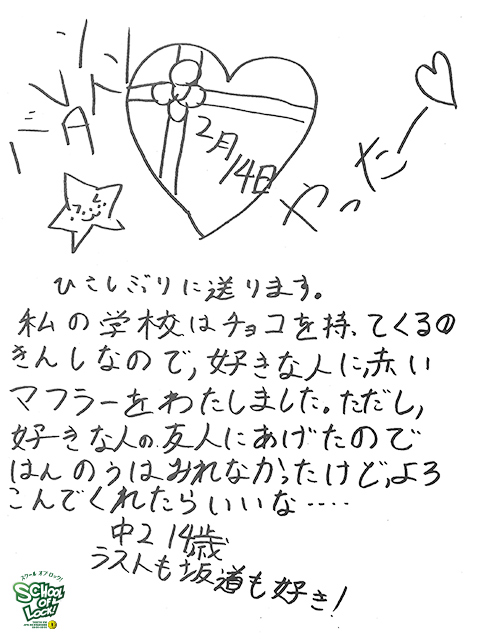 2月
14日
やったー
ひさしぶりに送ります。
私の学校はチョコを持ってくるの
きんしなので,好きな人に,赤い
マフラーをわたしました。ただし,
好きな人の友人にあげたので
はんのうはみれなかったけど,よろ
こんでくれたらいいな....
中2 14歳
ラストも坂道も好き!
スクールオブロック!
SCHOOL
OF
LOCK!